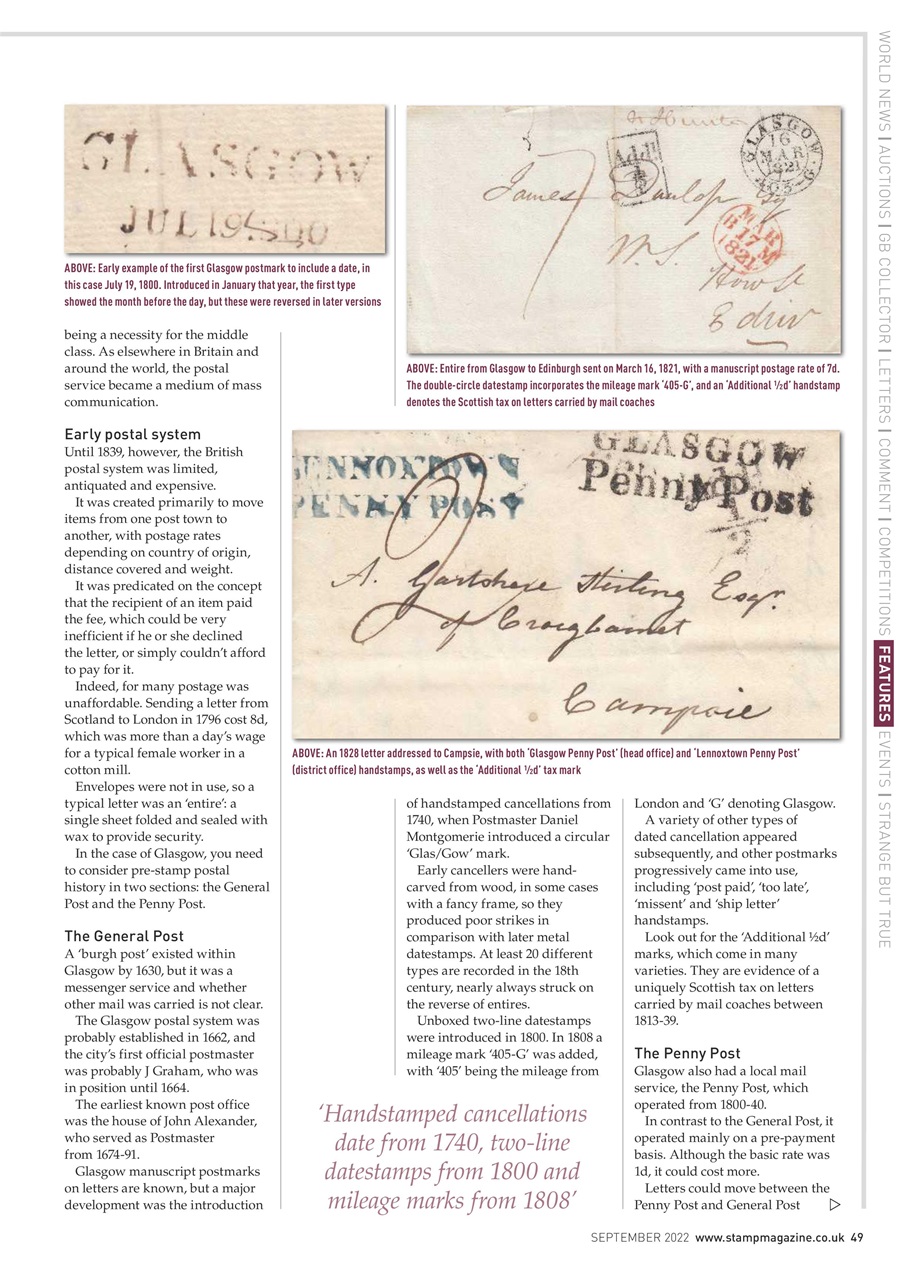 WORLD NEWS | AUCTIONS | GB COLLECTOR | LETTERS | COMMENT | COMPETITIONS FEATURES EVENTS | STRANGE BUT TRUE
GLASGOW
JUL 19 1800
ABOVE: Early example of the first Glasgow postmark to include a date, in
this case July 19, 1800. Introduced in January that year, the first type
showed the month before the day, but these were reversed in later versions
Addl
½
GLASGOW
16
MAR
1821
405-G
MAR
B 17 M
1821
7
James Dunlop Esq
W.S.
How St
Edinr
ABOVE: Entire from Glasgow to Edinburgh sent on March 16, 1821, with a manuscript postage rate of 7d.
The double-circle datestamp incorporates the mileage mark '405-G', and an 'Additional ½d' handstamp
denotes the Scottish tax on letters carried by mail coaches
being a necessity for the middle
class. As elsewhere in Britain and
around the world, the postal
service became a medium of mass
communication.
Early postal system
Until 1839, however, the British
postal system was limited,
antiquated and expensive.
It was created primarily to move
items from one post town to
another, with postage rates
depending on country of origin,
distance covered and weight.
It was predicated on the concept
that the recipient of an item paid
the fee, which could be very
inefficient if he or she declined
the letter, or simply couldn't afford
to pay for it.
Indeed, for many postage was
unaffordable. Sending a letter from
Scotland to London in 1796 cost 8d,
which was more than a day's wage
for a typical female worker in a
cotton mill.
Envelopes were not in use, so a
typical letter was an 'entire': a
single sheet folded and sealed with
wax to provide security.
In the case of Glasgow, you need
to consider pre-stamp postal
history in two sections: the General
Post and the Penny Post.
The General Post
A 'burgh post' existed within
Glasgow by 1630, but it was a
messenger service and whether
other mail was carried is not clear.
The Glasgow postal system was
probably established in 1662, and
the city's first official postmaster
was probably J Graham, who was
in position until 1664.
The earliest known post office
was the house of John Alexander,
who served as Postmaster
from 1674-91.
Glasgow manuscript postmarks
on letters are known, but a major
development was the introduction
LENNOXTOWN
PENNY POST
GLASGOW
Penny Post
½
A. Gartshore Stirling Esqr.
of Craigbarnet
Campsie
ABOVE: An 1828 letter addressed to Campsie, with both 'Glasgow Penny Post' (head office) and 'Lennoxtown Penny Post'
(district office) handstamps, as well as the 'Additional ½d' tax mark
of handstamped cancellations from
1740, when Postmaster Daniel
Montgomerie introduced a circular
'Glas/Gow' mark.
Early cancellers were hand-
carved from wood, in some cases
with a fancy frame, so they
produced poor strikes in
comparison with later metal
datestamps. At least 20 different
types are recorded in the 18th
century, nearly always struck on
the reverse of entires.
Unboxed two-line datestamps
were introduced in 1800. In 1808 a
mileage mark '405-G' was added,
with '405' being the mileage from
'Handstamped cancellations
date from 1740, two-line
datestamps from 1800 and
mileage marks from 1808'
London and 'G' denoting Glasgow.
A variety of other types of
dated cancellation appeared
subsequently, and other postmarks
progressively came into use,
including 'post paid', 'too late',
'missent' and 'ship letter'
handstamps.
Look out for the 'Additional ½d'
marks, which come in many
varieties. They are evidence of a
uniquely Scottish tax on letters
carried by mail coaches between
1813-39.
The Penny Post
Glasgow also had a local mail
service, the Penny Post, which
operated from 1800-40.
In contrast to the General Post, it
operated mainly on a pre-payment
basis. Although the basic rate was
1d, it could cost more.
Letters could move between the
Penny Post and General Post
SEPTEMBER 2022 www.stampmagazine.co.uk 49